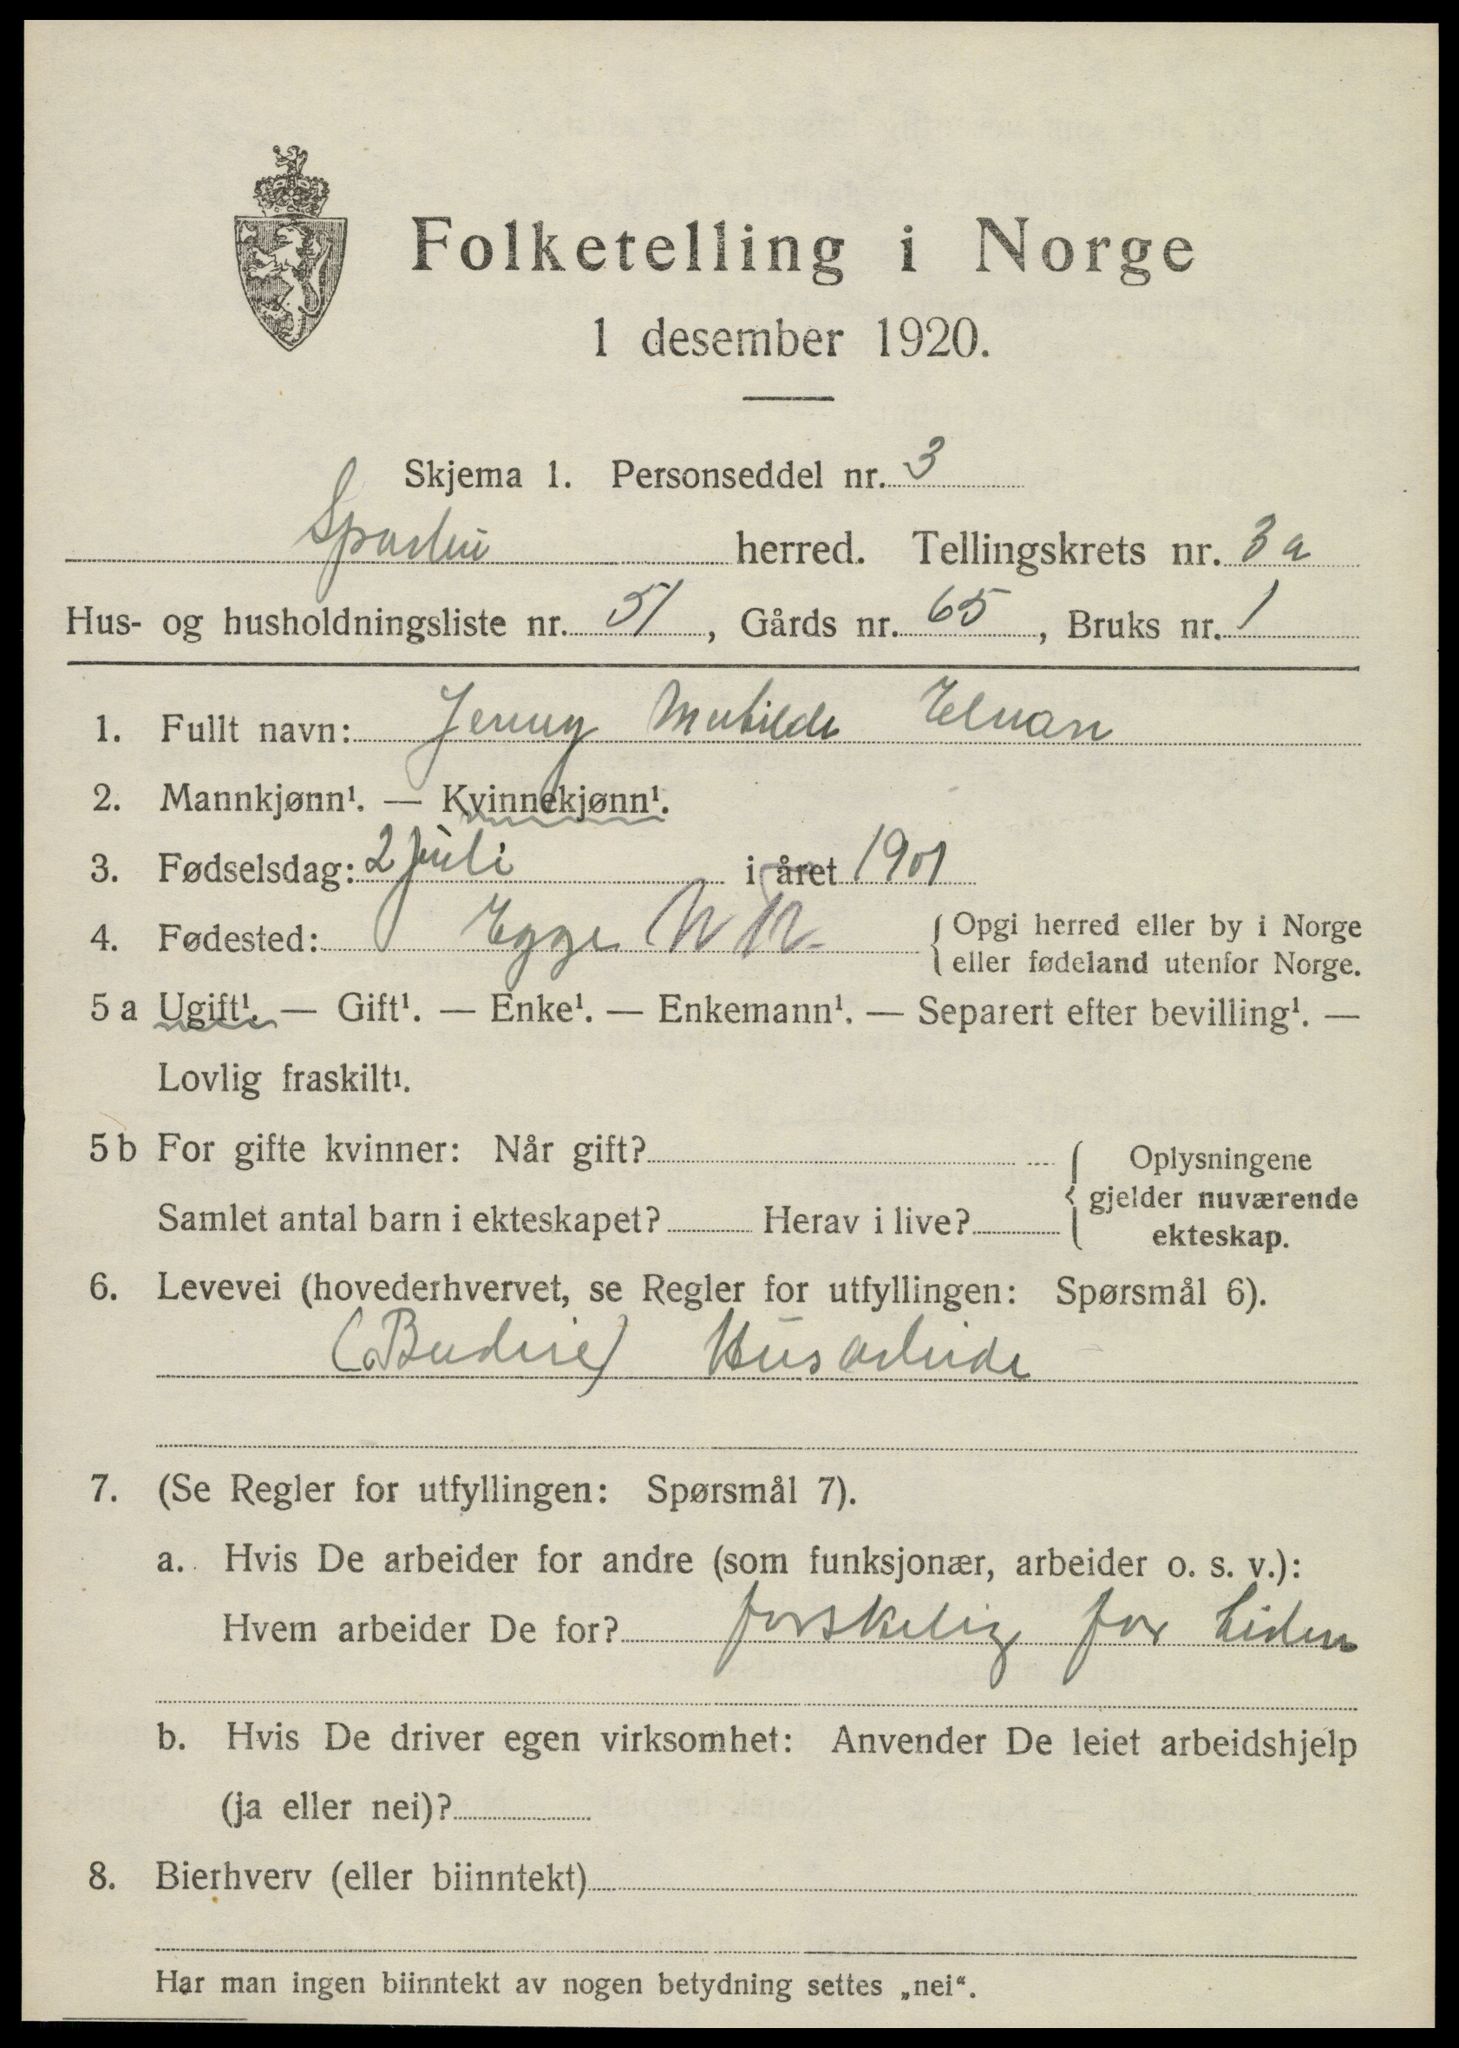 Folketelling i Norge
1 desember 1920.
Skjema 1. Personseddel nr. 3
Sparbu herred. Tellingskrets nr. 3a
Hus- og husholdningsliste nr. 51, Gårds nr. 65, Bruks nr. 1
1. Fullt navn: Jenny Matilde Elnan
2. Mannkjønn¹. — Kvinnekjønn¹.
3. Fødselsdag: 2 juli i året 1901
4. Fødested: Egge {Opgi herred eller by i Norge
eller fødeland utenfor Norge.
5 a Ugift¹. — Gift¹. — Enke¹. — Enkemann¹. — Separert efter bevilling¹. —
Lovlig fraskilt¹.
5 b For gifte kvinner: Når gift? {Oplysningene
gjelder nuværende
Samlet antal barn i ekteskapet? Herav i live?
ekteskap.
6. Levevei (hovederhvervet, se Regler for utfyllingen: Spørsmål 6).
(Budeie) Husarbeide
7. (Se Regler for utfyllingen: Spørsmål 7).
a. Hvis De arbeider for andre (som funksjonær, arbeider o. s. v.):
Hvem arbeider De for? forskelig for tiden
b. Hvis De driver egen virksomhet: Anvender De leiet arbeidshjelp
(ja eller nei)?
8. Bierhverv (eller biinntekt)
Har man ingen biinntekt av nogen betydning settes „nei“.